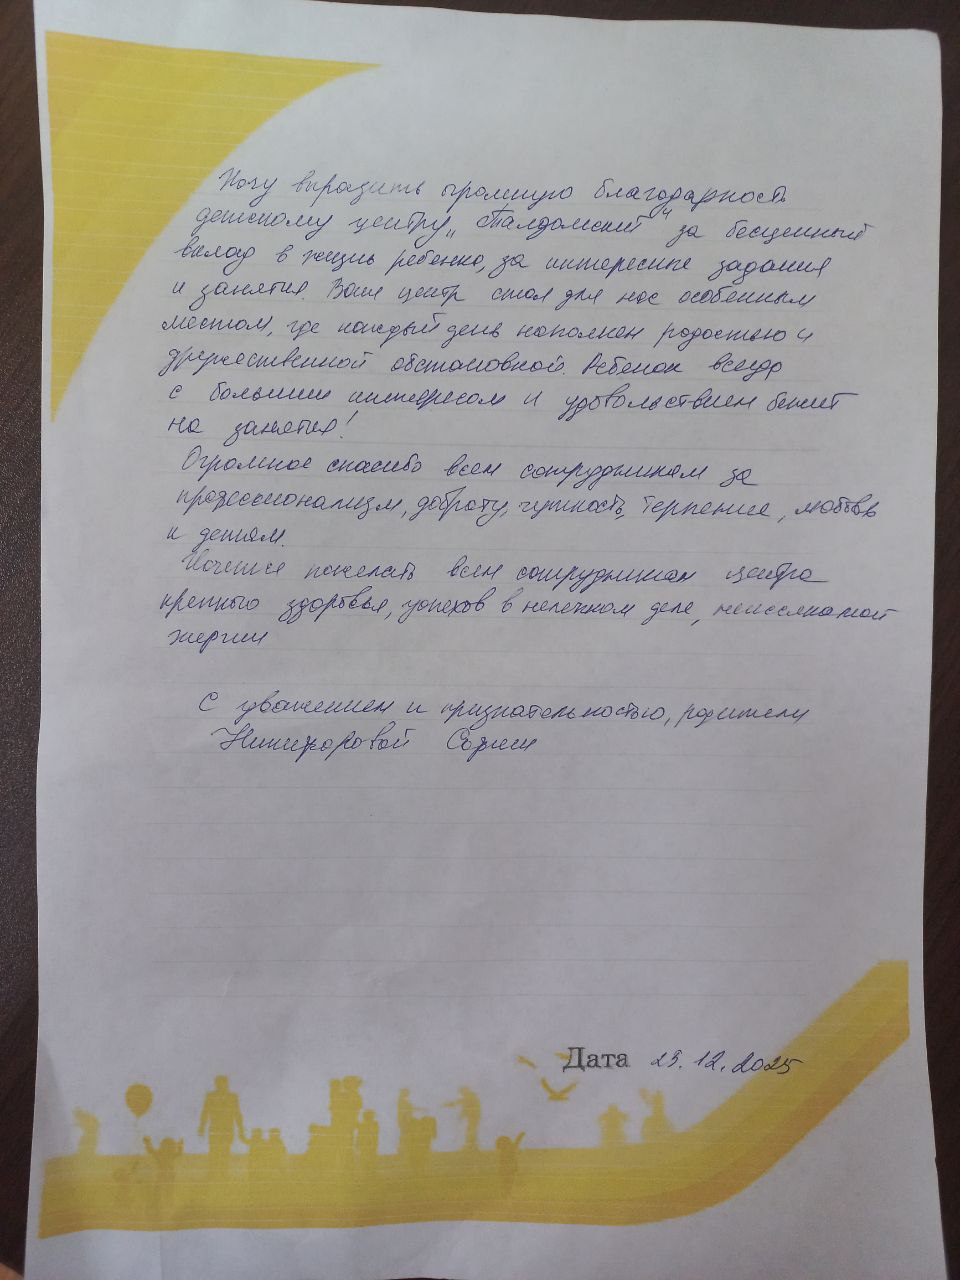 Хочу выразить огромную благодарность
детскому центру „Талдомский" за бесценный
вклад в жизнь ребенка, за интересные задания
и занятия. Ваш центр стал для нас особенным
местом, где каждый день наполнен радостью и
дружественной обстановкой. Ребенок всегда
с большим интересом и удовольствием бежит
на занятия!
Огромное спасибо всем сотрудникам за
профессионализм, доброту, чуткость, терпение, любовь
к детям.
Хочется пожелать всем сотрудникам центра
крепкого здоровья, успехов в нелегком деле, неиссякаемой
энергии
С уважением и признательностью, родители
Никифоровой Софии
Дата 23.12.2025